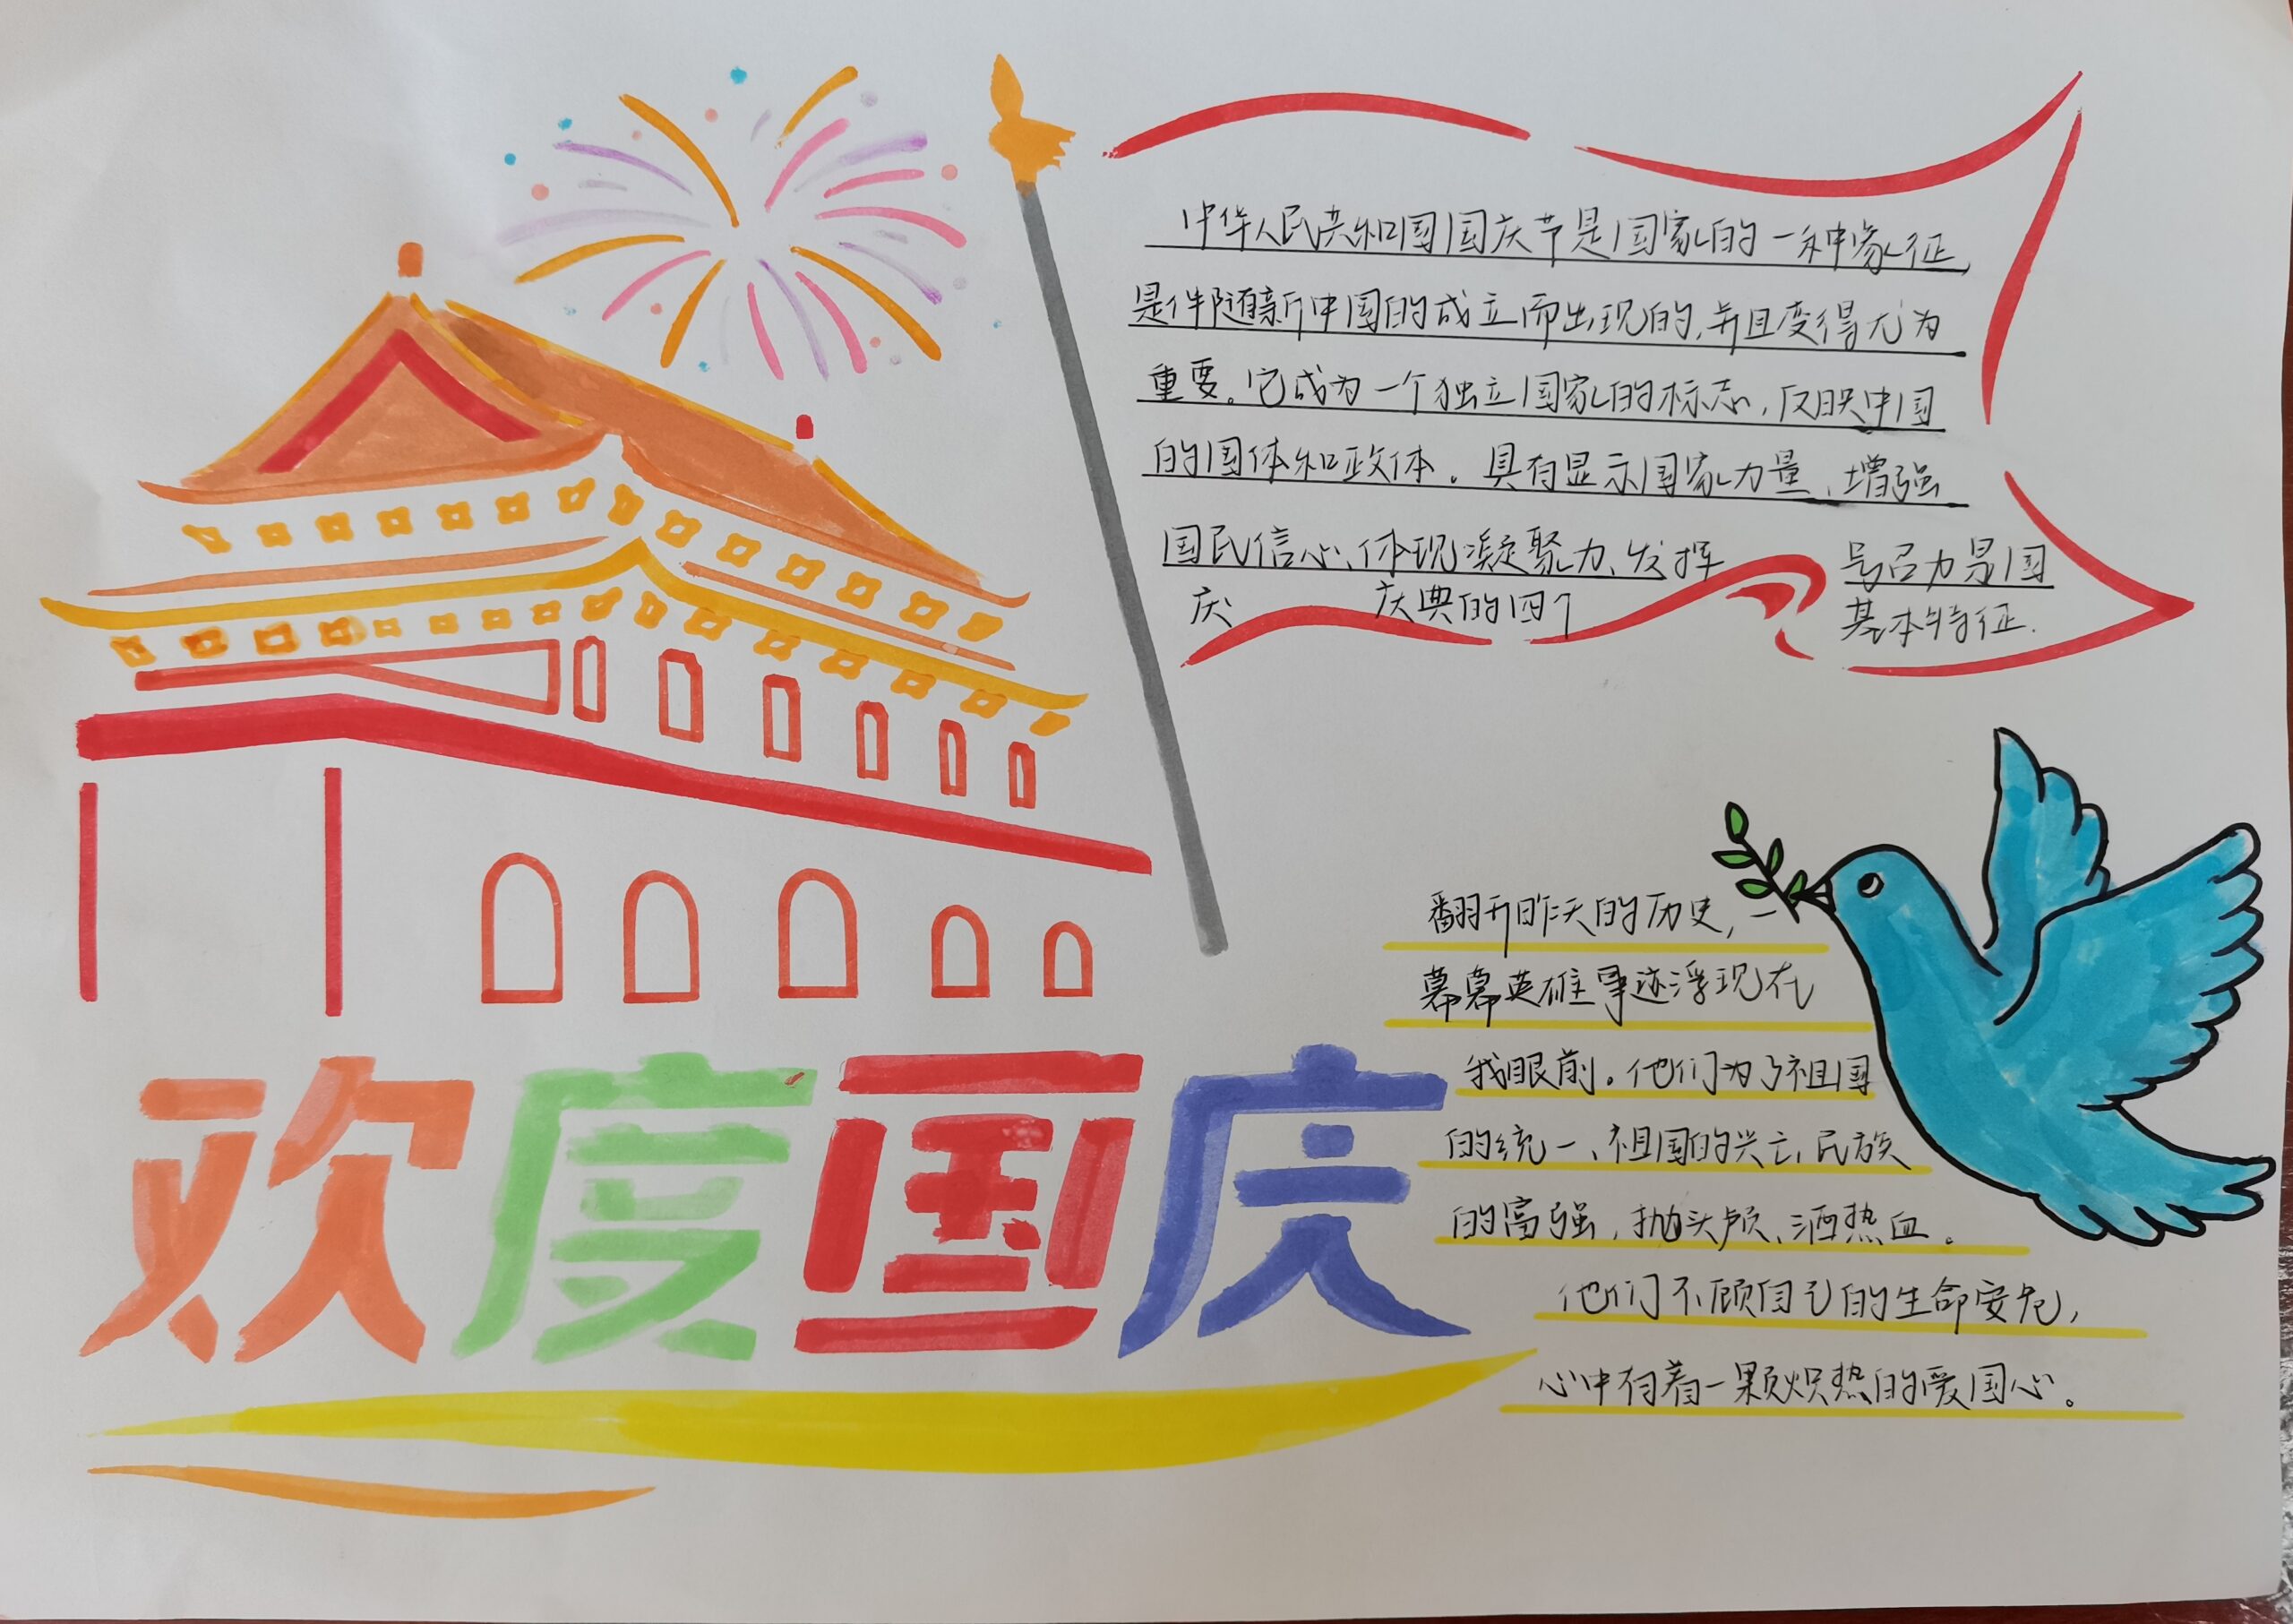 中华人民共和国国庆节是国家的一种象征,
是伴随新中国的成立而出现的,并且变得尤为
重要。它成为一个独立国家的标志,反映中国
的国体和政体。具有显示国家力量、增强
国民信心、体现凝聚力、发挥 号召力是国
庆 庆典的四个 基本特征.
翻开昨天的历史,一
幕幕英雄事迹浮现在
我眼前。他们为了祖国
的统一、祖国的兴亡、民族
的富强,抛头颅、洒热血。
他们不顾自己的生命安危,
心中有着一颗炽热的爱国心。
欢度国庆